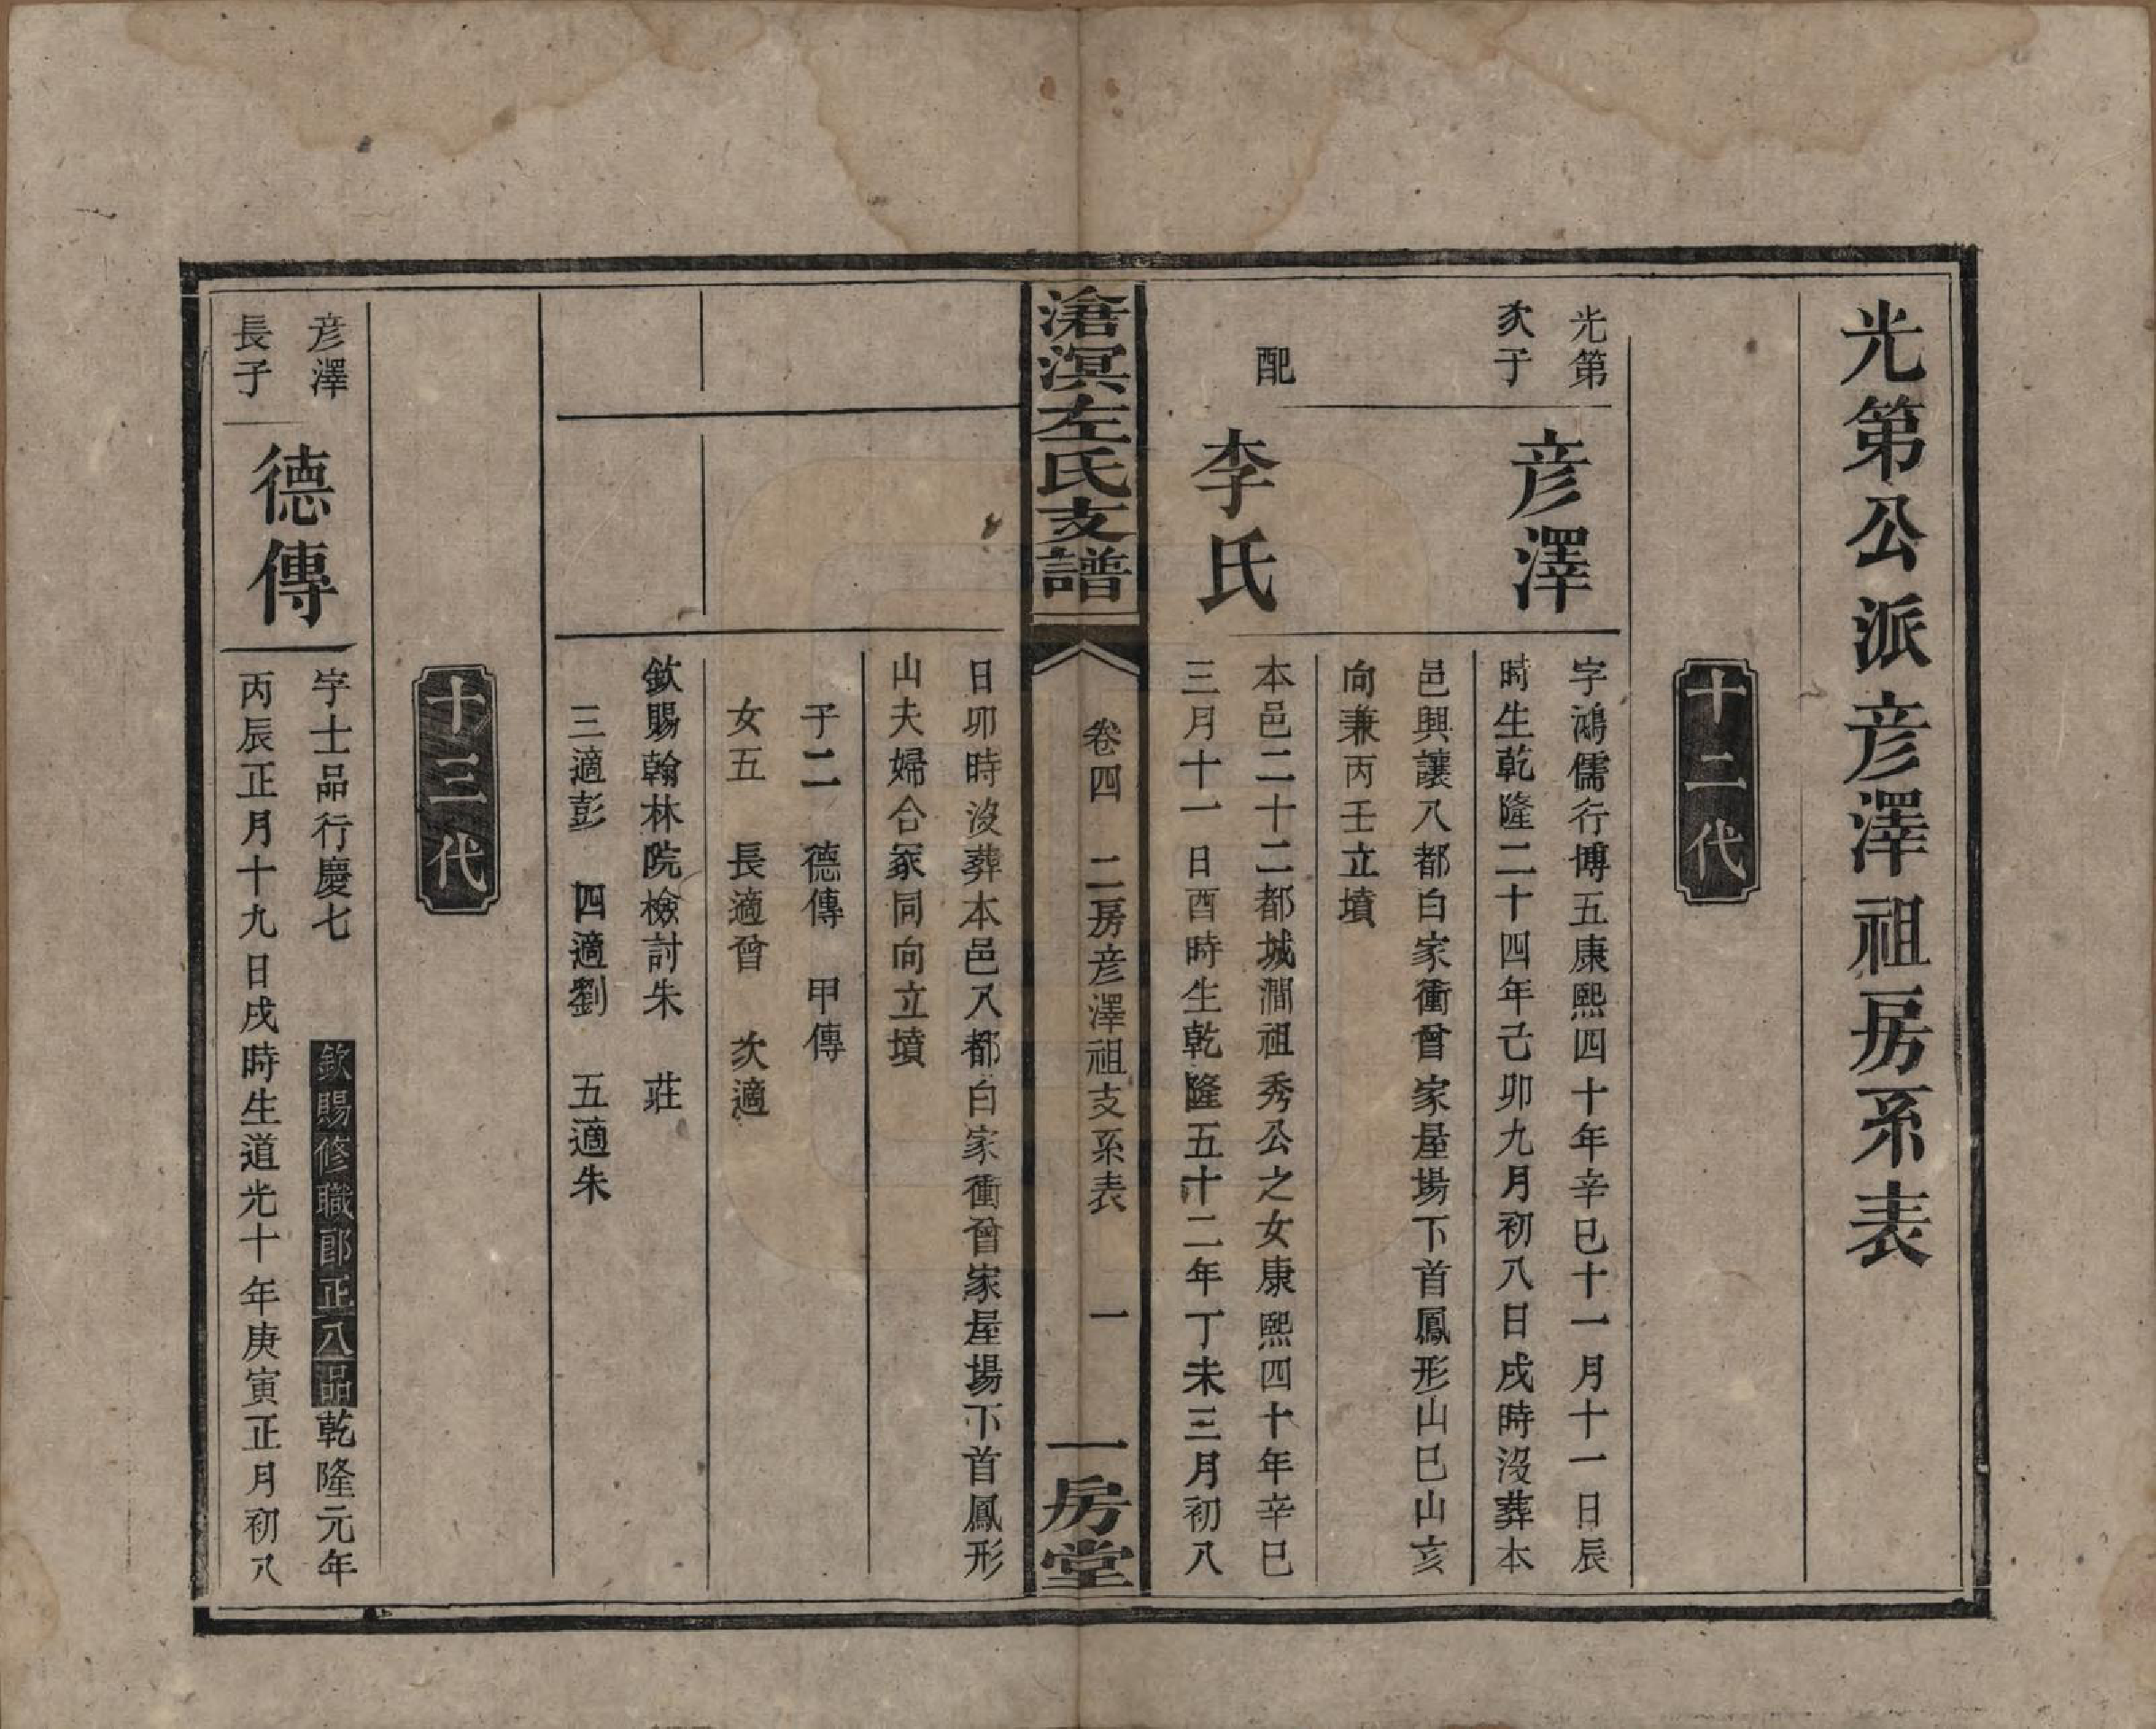 光第公派彦澤祖房系表
十二代
光第
次子
彦澤
字鴻儒行博五康熙四十年辛巳十一月十一日辰
時生乾隆二十四年己卯九月初八日戌時沒葬本
邑興讓八都白家衝曾家屋場下首鳳形山巳山亥
向兼丙壬立墳
配
李氏
本邑二十二都城澗祖秀公之女康熙四十年辛巳
三月十一日酉時生乾隆五十二年丁未三月初八
滄溟左氏支譜
卷四 二房彦澤祖支系表 一
一房堂
日卯時沒葬本邑八都白家衝曾家屋場下首鳳形
山夫婦合冢同向立墳
子二 德傳 甲傳
女五 長適曾 次適
欽賜翰林院檢討朱 莊
三適彭 四適劉 五適朱
十三代
彦澤
長子
德傳
字士品行慶七 欽賜修職郎正八品乾隆元年
丙辰正月十九日戌時生道光十年庚寅正月初八